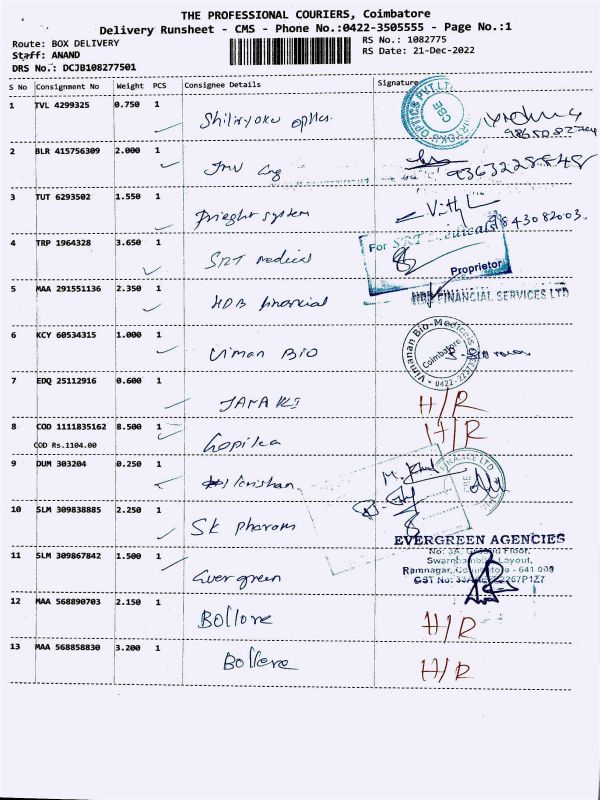 THE PROFESSIONAL COURIERS, Coimbatore
Delivery Runsheet - CMS - Phone No.:0422-3505555 - Page No.:1
Route: BOX DELIVERY
RS No.: 1082775
Staff: ANAND
RS Date: 21-Dec-2022
DRS No.: DCJB108277501
S No Consignment No Weight PCS Consignee Details Signature
1 TVL 4299325 0.750 1
2 BLR 415756309 2.000 1
3 TUT 6293502 1.550 1 system
9843082003.
4 TRP 1964328 3.650 1 SRT medical
For SRT Medicals
Proprietor
5 MAA 291551136 2.350 1 HDB financial
HDB FINANCIAL SERVICES LTD
6 KCY 60534315 1.000 1 Viman Bio
Vimanan Bio-Medicals
Coimbatore
7 EDQ 25112916 0.600 1 JANAKI H/R
8 COD 1111835162 8.500 1 Gopilea H/R
COD Rs.1104.00
9 DUM 303204 0.250 1
10 SLM 309838885 2.250 1 SK pharam
11 SLM 309867842 1.500 1 Evergreen
EVERGREEN AGENCIES
No: 3A, Ground Floor,
Layout,
Ramnagar, Coimbatore - 641 009
GST No:
12 MAA 568890703 2.150 1 Bollore H/R
13 MAA 568858830 3.200 1 Bollore H/R